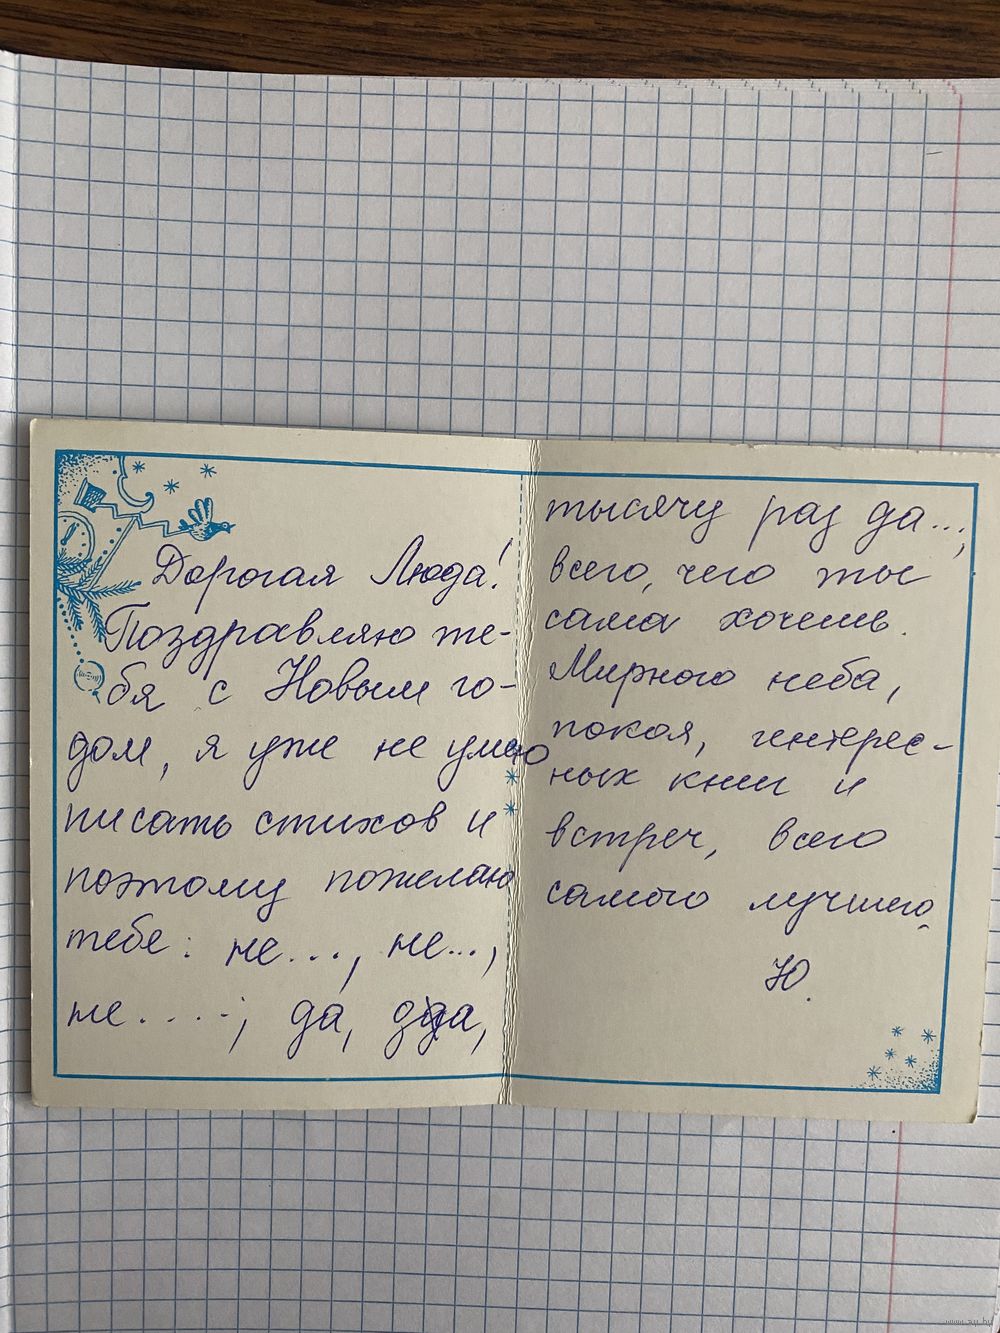 Дорогая Люда!
Поздравляю те-
бя с Новым го-
дом, я уже не умею
писать стихов и
поэтому пожелаю
тебе: не..., не...,
не.....; да, да,
тысячу раз да...,
всего, чего ты
сама хочешь.
Мирного неба,
покоя, интерес-
ных книг и
встреч, всего
самого лучшего.
Ю.
www.ay.by